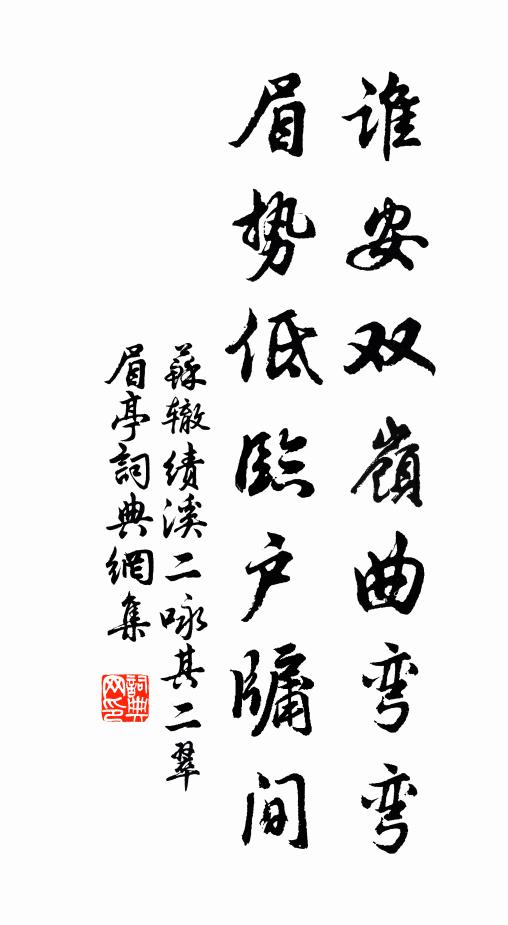 谁安双嶺曲弯弯
眉势低臨户牖间
蘇辙绩溪二咏其二翠
眉亭詞典網集
詞典
网印